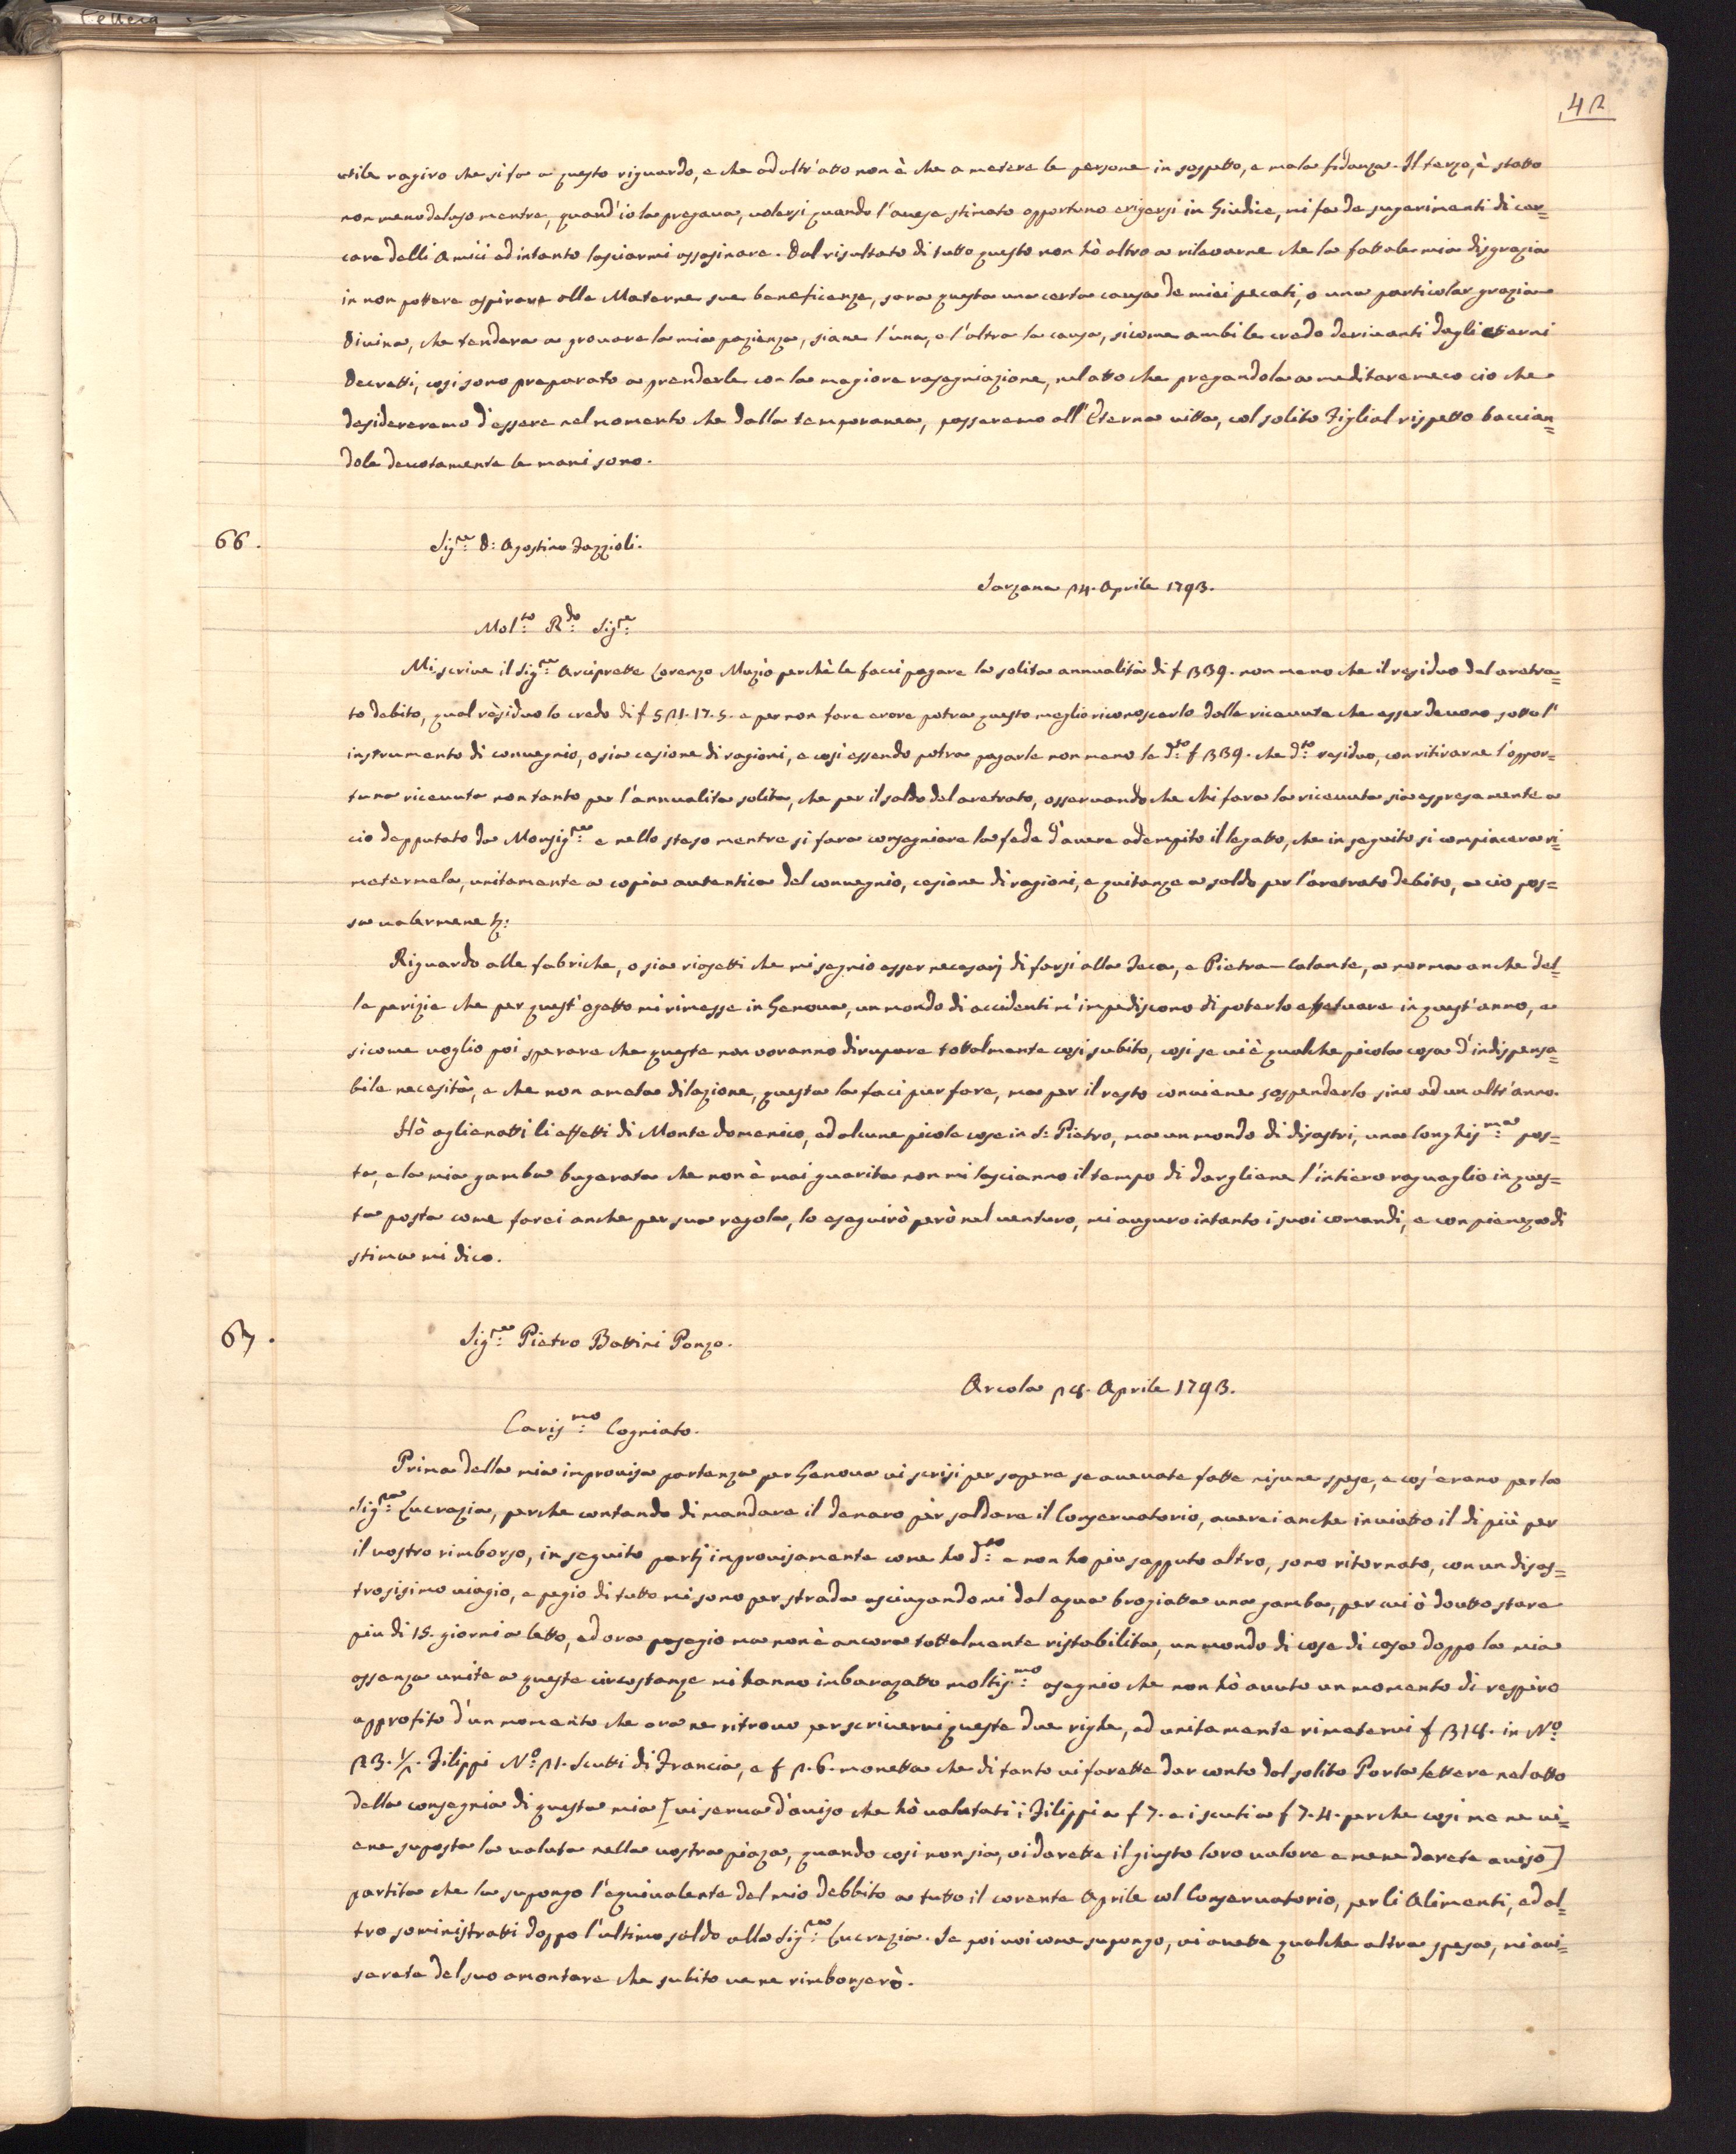 42
utile ragiro che si fa a questo riguardo, e che ad altr'atto non è che a metere le persone in sospetto, e mala fidanza. Il terzo, è statto
non meno deluso mentre, quand'io la pregava, volersi quando l'avese stimato opportuno erigersi in Giudice, mi fa de sugerimenti di cer=
care delli Amici ed intanto lasciarmi assasinare. Dal risultato di tutto questo non hò altro a rilevarne che la fattale mia disgrazia
in non pottere aspirare alle Materne sue beneficenze, sara questa una certa causa de miei pecati, o una particolar grazia
Divina, che tendera a provare la mia pazienza, siane l'una, o l'altra la causa, sicome ambi le credo derivanti dagli eterni
Decretti, cosi sono preparato a prenderle con la magiore rasegniazione, nel atto che pregandola a meditare meco cio che
desidereremo d'essere nel momento che dalla temporanea, passaremo all'Eterna vitta, col solito Figlial rispetto baccian=
dole devotamente le mani sono.
66. Sig.re D: Agostino Fazzioli.
Sarzana 24. Aprile 1793.
Mol.to R.do Sig.re
Mi scrive il Sig.re Arciprette Lorenzo Muzio perchè le facci pagare la solita annualità di f 339. non meno che il residuo del aretra=
to debito, qual rèsiduo lo credo di f 521.17.5. e per non fare erore potra questo meglio riconoscerlo dalle ricevute che esser devono sotto l'
instrumento di convegnio, o sia cesione di ragioni, e cosi essendo potra pagarle non meno le d.te f 339. che d.to residuo, con ritirarne l'oppor=
tuna ricevuta non tanto per l'annualita solita, che per il saldo del aretrato, osservando che chi fara la ricevuta sia espresamente a
cio depputato da Monsig.re e nello steso mentre si fara consegniare la fede d'avere adempito il legatto, che in seguito si compiacera ri=
metermela, unitamente a copia autentica del convegnio, cesione di ragioni, e quitanze a saldo per l'aretrato debito, a cio pos=
sa valermene &:
Riguardo alle fabriche, o sia riasetti che mi segniò esser necesarj di farsi alla Teca, e Pietra=Calante, a norma anche del=
le perizie che per quest'ogetto mi rimesse in Genova, un mondo di accidenti m'impediscono di poterlo effetuare in quest'anno, e
sicome voglio poi sperare che queste non voranno dirupare tottalmente cosi subito, cosi se vi è qualche picola cosa d'indispensa=
bile necesità, e che non ameta dilazione, questa la faci pur fare, ma per il resto conviene sospenderlo sino ad un altr'anno.
Hò aglienatti li effetti di Monte domenico, ed alcune picole cose in S: Pietro, ma un mondo di disastri, una longhis.ma pos=
ta, e la mia gamba bugerata che non è mai guarita non mi lascianno il tempo di dargliene l'intiero raguaglio in ques=
ta posta come farei anche per sua regola, lo eseguirò però nel venturo, mi auguro intanto i suoi comandi, e con pieneza di
stima mi dico.
67. Sig.re Pietro Battini Ponzo.
Arcola 28. Aprile 1793.
Caris.mo Cogniato.
Prima della mia improvisa partenza per Genova vi scrisi per sapere se avevate fatte nisune spese, e cos'erano per la
Sig.ra Lucrezia, perche contando di mandare il denaro per saldare il Conservatorio, averei anche inviatto il di più per
il vostro rimborso, in seguito partj improvisamente come ho d.to e non ho piu sapputo altro, sono ritornato, con un disas=
trosisimo viagio, e pegio di tutto mi sono per strada asciugandomi dal aqua brogiatta una gamba, per cui ò doutto stare
piu di 15. giorni a letto, ed ora pasegio ma non è ancora tottalmente ristabilita, un mondo di cose di casa doppo la mia
assenza unite a queste circostanze mi hanno imbarazatto moltis.mo asegnio che non hò avuto un momento di respiro
approfito d'un momento che ora ne ritrovo per scrivervi queste due righe, ed unitamente rimetervi f 318. in N.o
23. 1/2. Filippi N.o 21. Scutti di Francia, e f 2.6. monetta che di tanto vi farette dar conto dal solito Porta lettere nel atto
della consegnia di questa mia [vi serva d'aviso che hò valutati i Filippi a f 7. e i scuti a f 7.4. perche cosi me ne vi=
ene suposta la valuta nella vostra piaza, quando cosi non sia, vi darette il giusto loro valore e me ne darete aviso]
partita che la supongo l'equivalente del mio debbito a tutto il corente Aprile col Conservatorio, per li Alimenti, ed al=
tro soministratti doppo l'ultimo saldo alla Sig.ra Lucrezia. Se poi voi come supongo, vi avette qualche altra spesa, mi avi=
sarete del suo amontare che subito ve ne rimborserò.